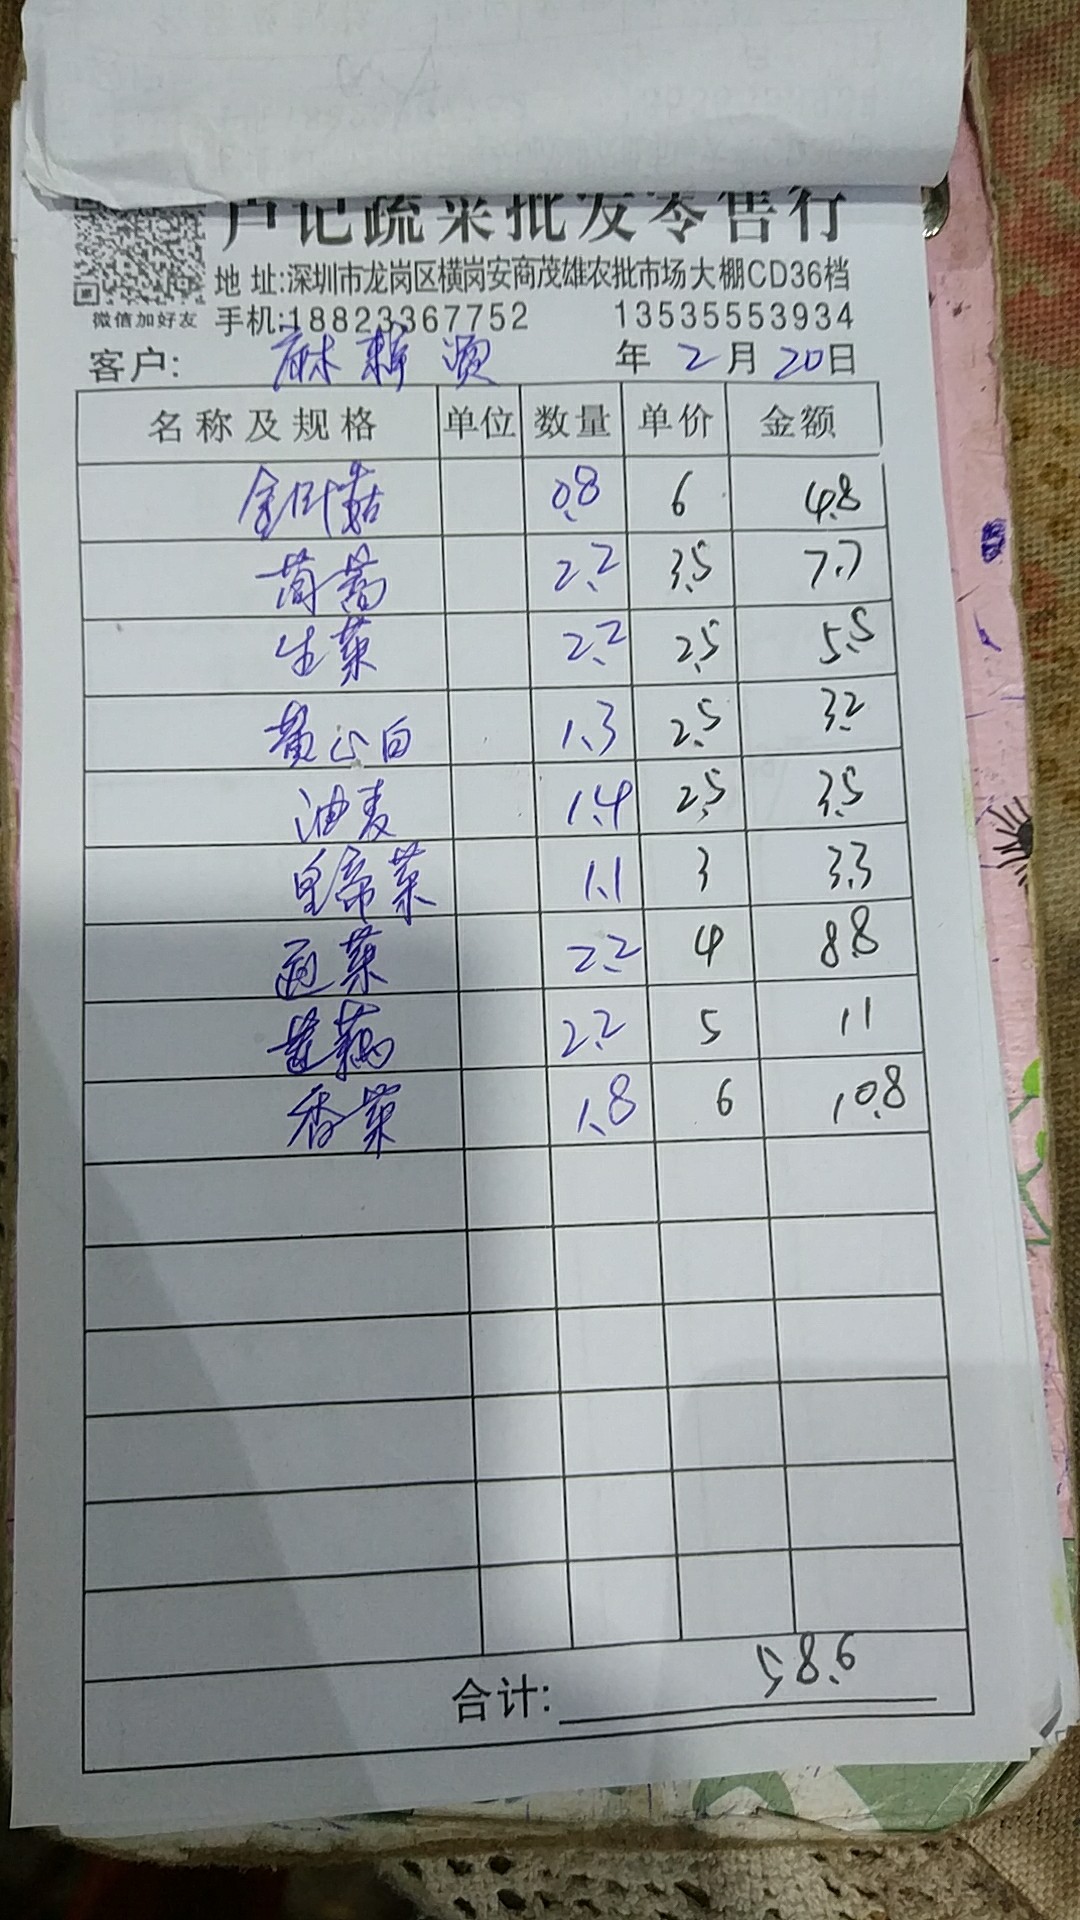 卢记蔬菜批发零售行
地 址:深圳市龙岗区横岗安商茂雄农批市场大棚CD36档
微信加好友 手机:18823367752 13535553934
客户: 麻辣烫 年 2 月 20 日
名称及规格 单位 数量 单价 金额
金针菇 0.8 6 4.8
茼蒿 2.2 3.5 7.7
生菜 2.2 2.5 5.5
黄心白 1.3 2.5 3.2
油麦 1.4 2.5 3.5
皇帝菜 1.1 3 3.3
菜 2.2 4 8.8
藕 2.2 5 11
香菜 1.8 6 10.8
合计: 58.6